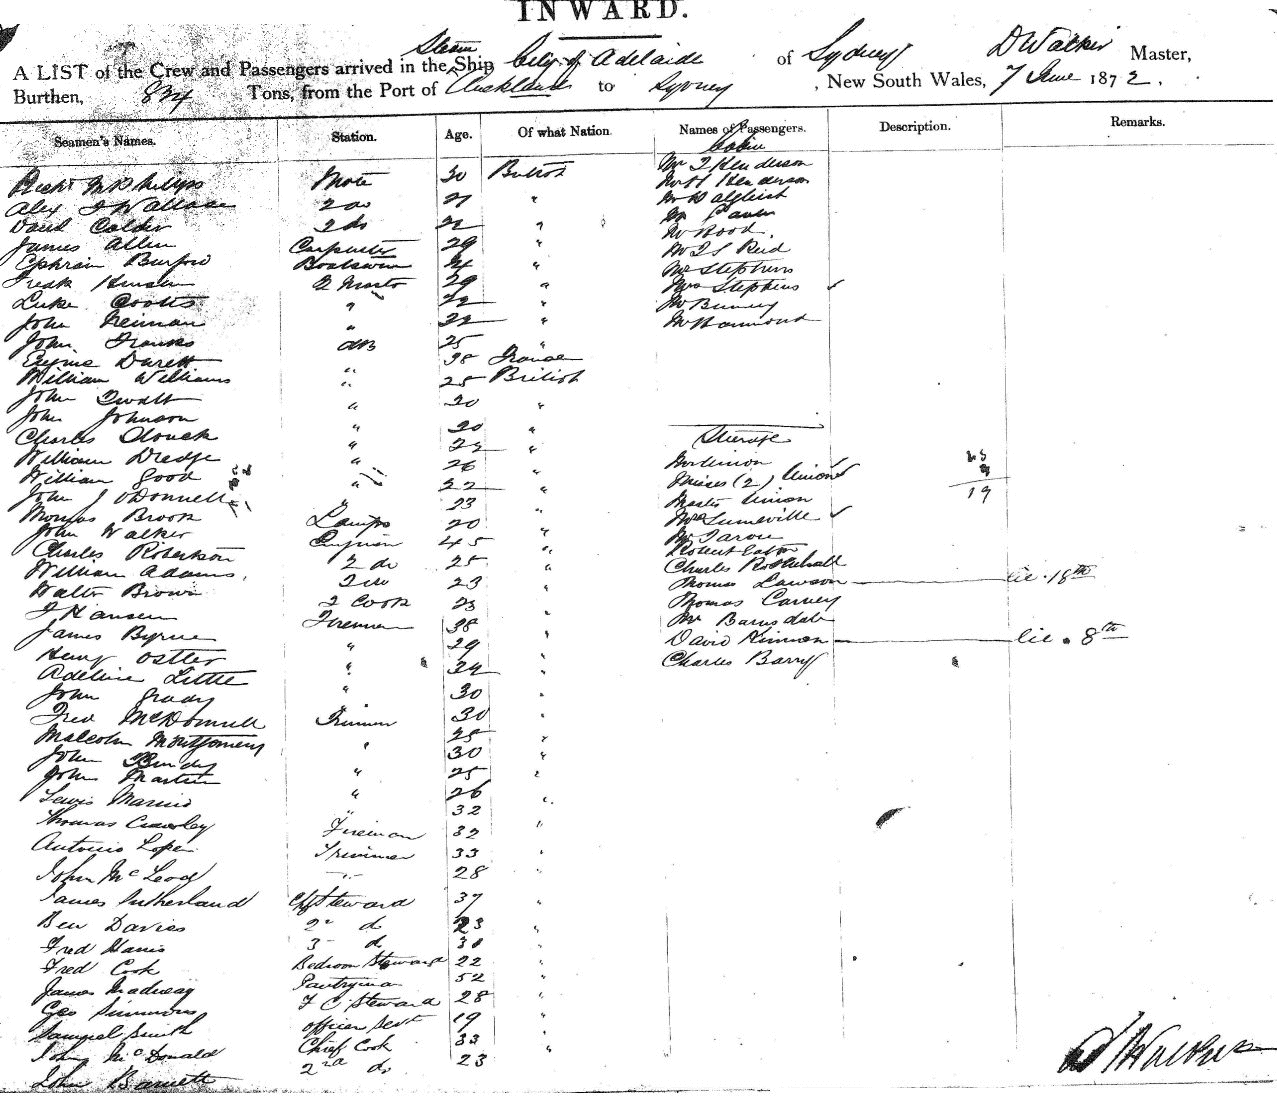 INWARD.
Steam
A LIST of the Crew and Passengers arrived in the Ship City of Adelaide of Sydney D Walker Master,
Burthen, 824 Tons, from the Port of Auckland to Sydney, New South Wales, 7 June 1872.
Seamen's Names. Station. Age. Of what Nation. Names of Passengers. Description. Remarks.
Cabin
Phillips Mate 30 British Mr Henderson
Alex Wallace 2 do 27 " Mr H Henderson
David Calder 3 do 22 " Mr Dalgleish
James Allen Carpenter 29 " Mr
Ephraim Burford Boatswain " Mr Hood.
Fredk Hansen 2 Mate 29 " Mr Reid
Luke Cootts " 22 " Mr Stephens
John Neiman " 22 " Mrs Stephens
John Franks AB 25 " Mr Binney
Eugene Durett " 38 France Mr Hammond
William Williams " 25 British
John Ewatt " 20 "
John Johnson " 20 "
Charles Clouck " 22 " Steerage
William Dredge " 26 "
William Good " 22 " Misses (2) Union
John J O'Donnell " 23 " Master Union 19
Thomas Brook Lamps 20 " Mrs Sumerville
John Walker Engineer 45 " Mr
Charles Robertson 2 do 25 " Robert Eaton
William Adams. 3 do 23 " Charles
Walter Brown 2 Cook 23 " Thomas Lawson lic. 18th
J Hansen Firemen 38 " Thomas Carney
James Byrne " 29 " Mr Barnsdale
Henry Ostler " 24 " David lic. 8th
Adeline Little " 30 " Charles Barry
John Grady 30 "
Fred McDonnell Trimmer 25 "
Malcolm Montgomery " 30 "
John Bundy " 25 "
John Martin " 26 "
Lewis " 32 "
Thomas Crawley Fireman 32 "
Antonio Lopez Trimmer 33 "
John McLeod " 28
James Sutherland Chf Steward 37 "
Ben Davies 2nd do 23 "
Fred Harris 3 do 30 "
Fred Cook Bedroom Steward 22 "
James Madway Pantryman 52 "
Geo Simmons F C Steward 28 "
Samuel Smith officer Servt 19 "
John McDonald Chief Cook 33 "
John Barnett 2nd do 23 "
D Walker